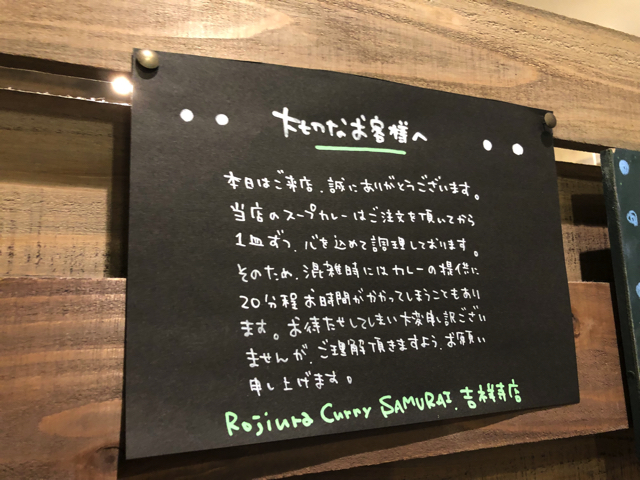 大切なお客様へ
本日はご来店、誠にありがとうございます。
当店のスープカレーはご注文を頂いてから
1皿ずつ、心を込めて調理しております。
そのため、混雑時にはカレーの提供に
20分程お時間がかかってしまうこともあり
ます。お待たせしてしまい大変申し訳ござい
ませんが、ご理解頂きますよう、お願い
申し上げます。
Rojiura Curry SAMURAI. 吉祥寺店